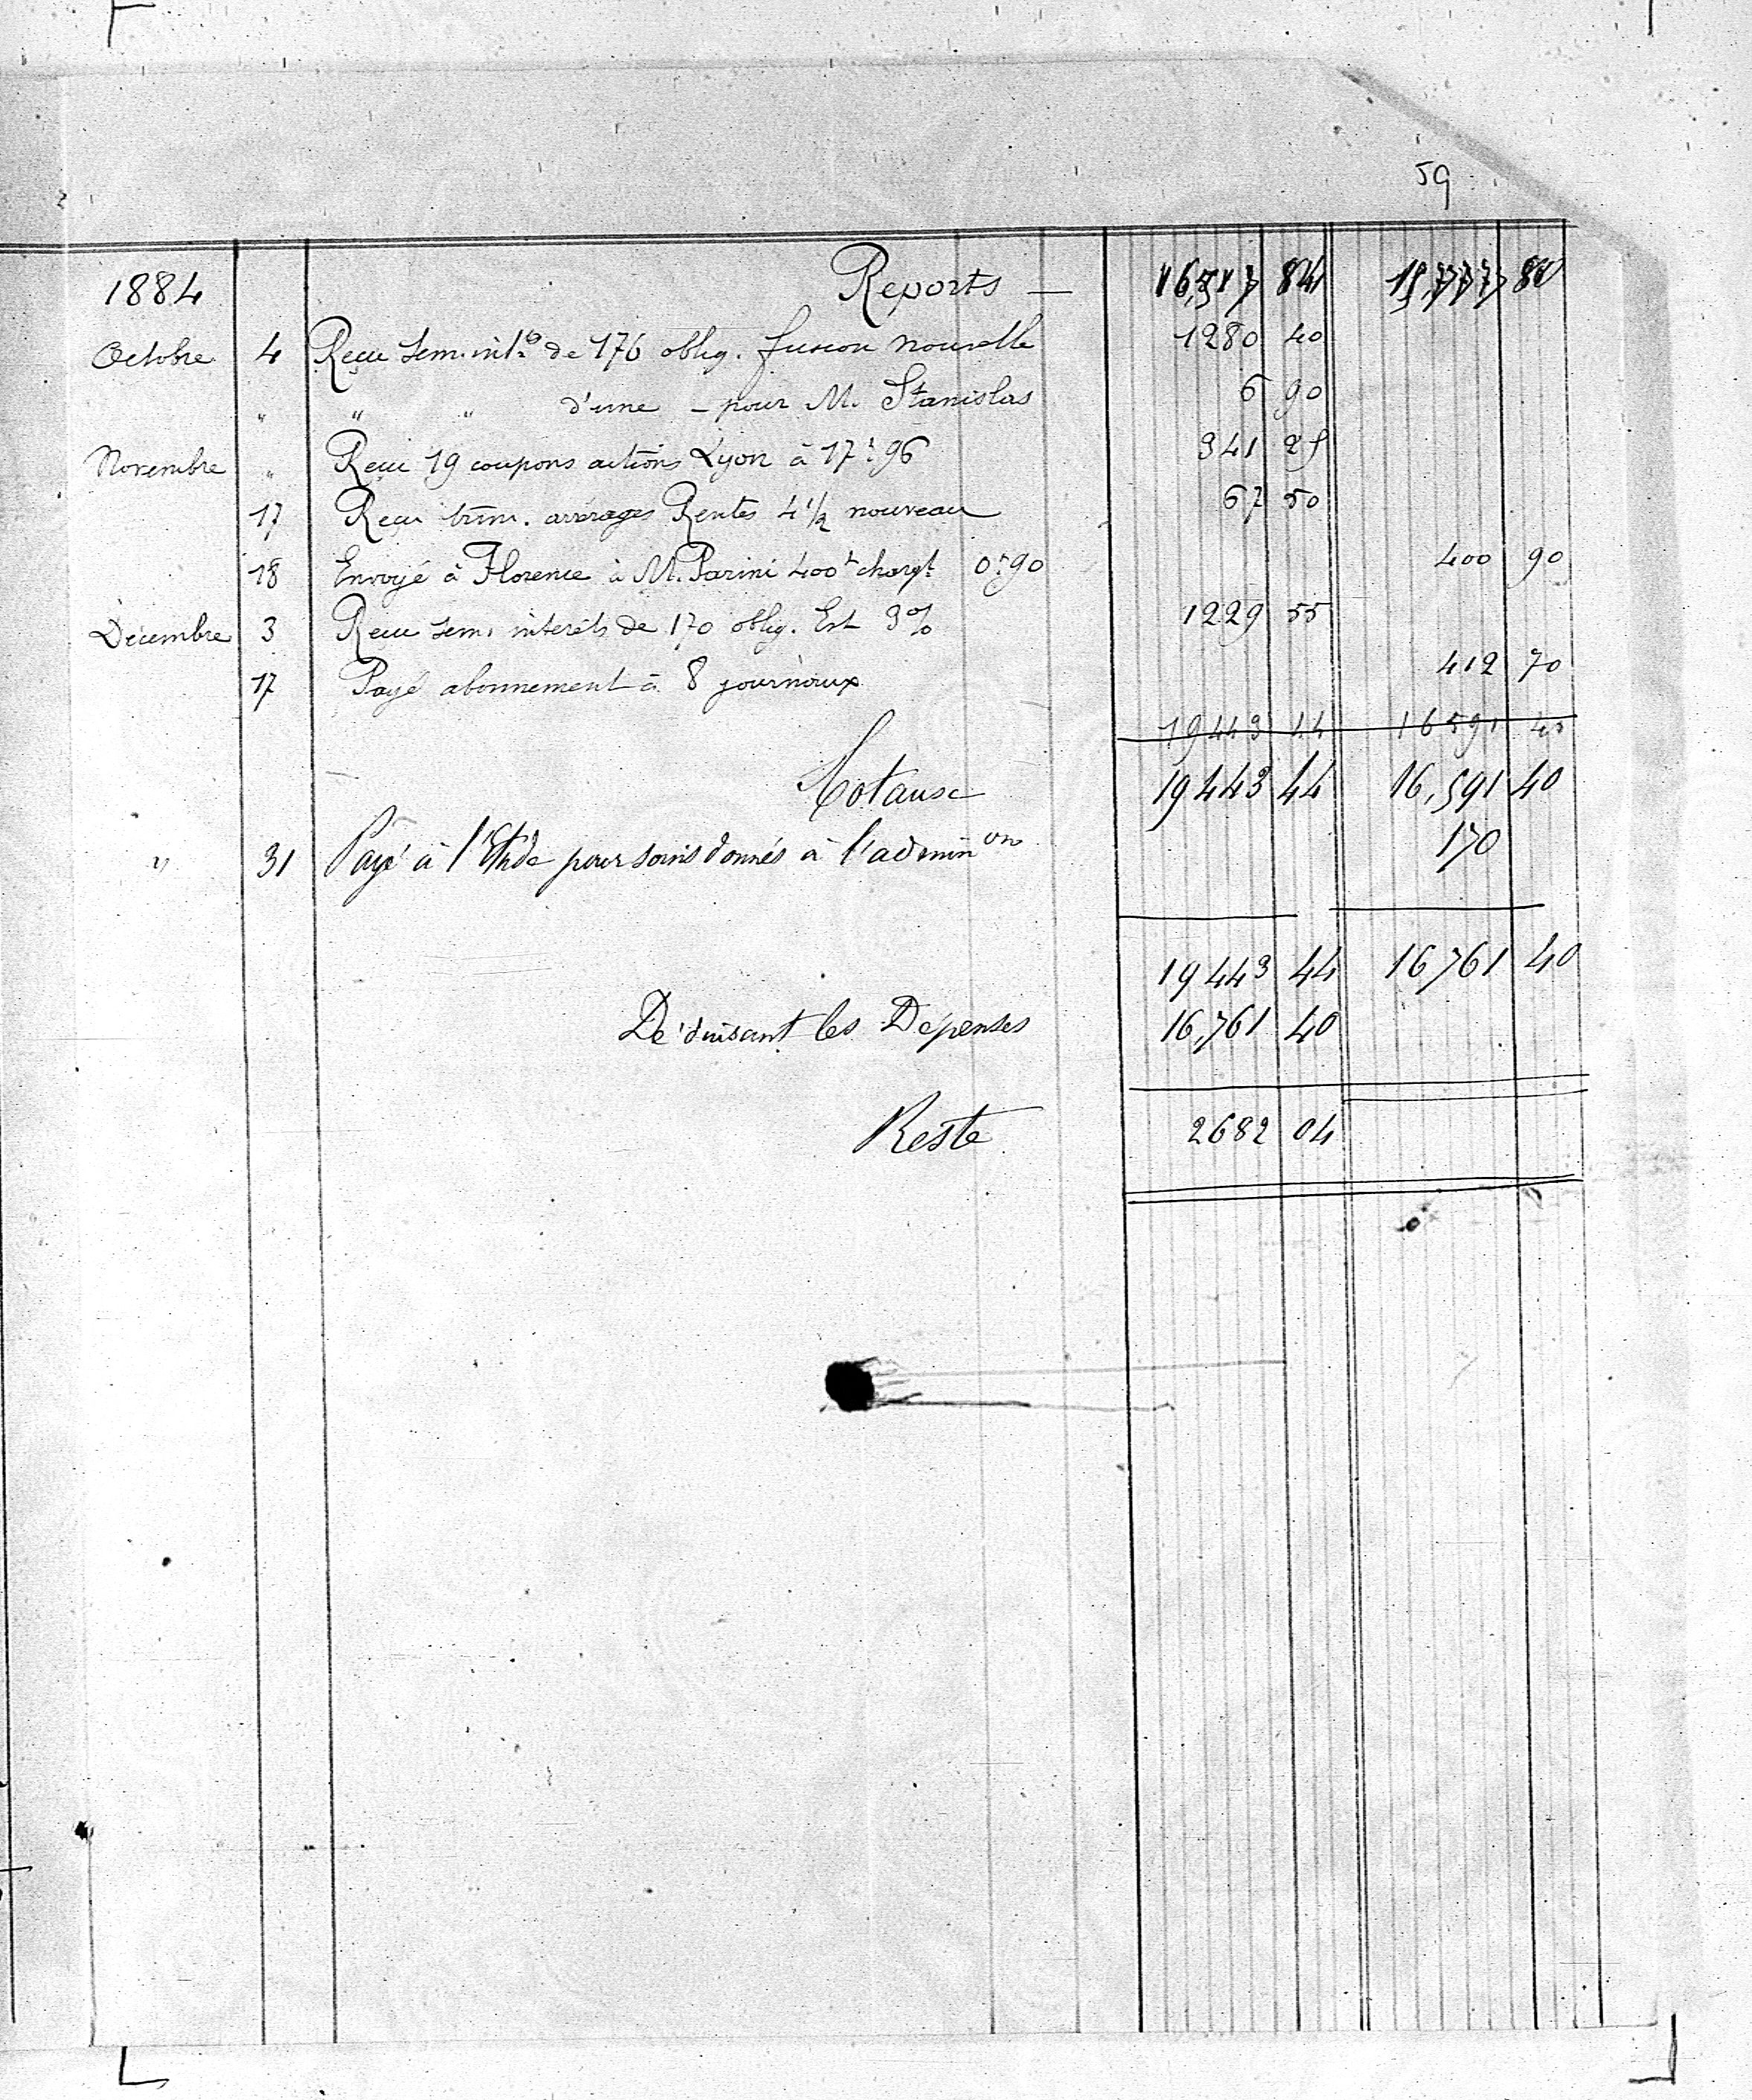 59
1884 Reports — 16,517 84 15,777 80
Octobre 4 Reçu sem. int.ts de 176 oblig. fusion nouvelle 1280 40
" " " d'une — pour M. Stanislas 6 90
Novembre " Reçu 19 coupons actions Lyon à 17f 96 341 25
17 Reçu trim. arrérages Rentes 4 1/2 nouveau 67 50
18 Envoyé à Florence à M. Parini 400f chargt 0f90 400 90
Décembre 3 Reçu sem. intérêts de 170 oblig. Est 3% 1229 55
17 Payé abonnement à 8 journaux 412 70
19443 44 16591 40
Totaux 19443 44 16,591 40
" 31 Payé à l'Etude pour soins donnés à l'adminon 170
19443 44 16761 40
Déduisant les Dépenses 16,761 40
Reste 2682 04